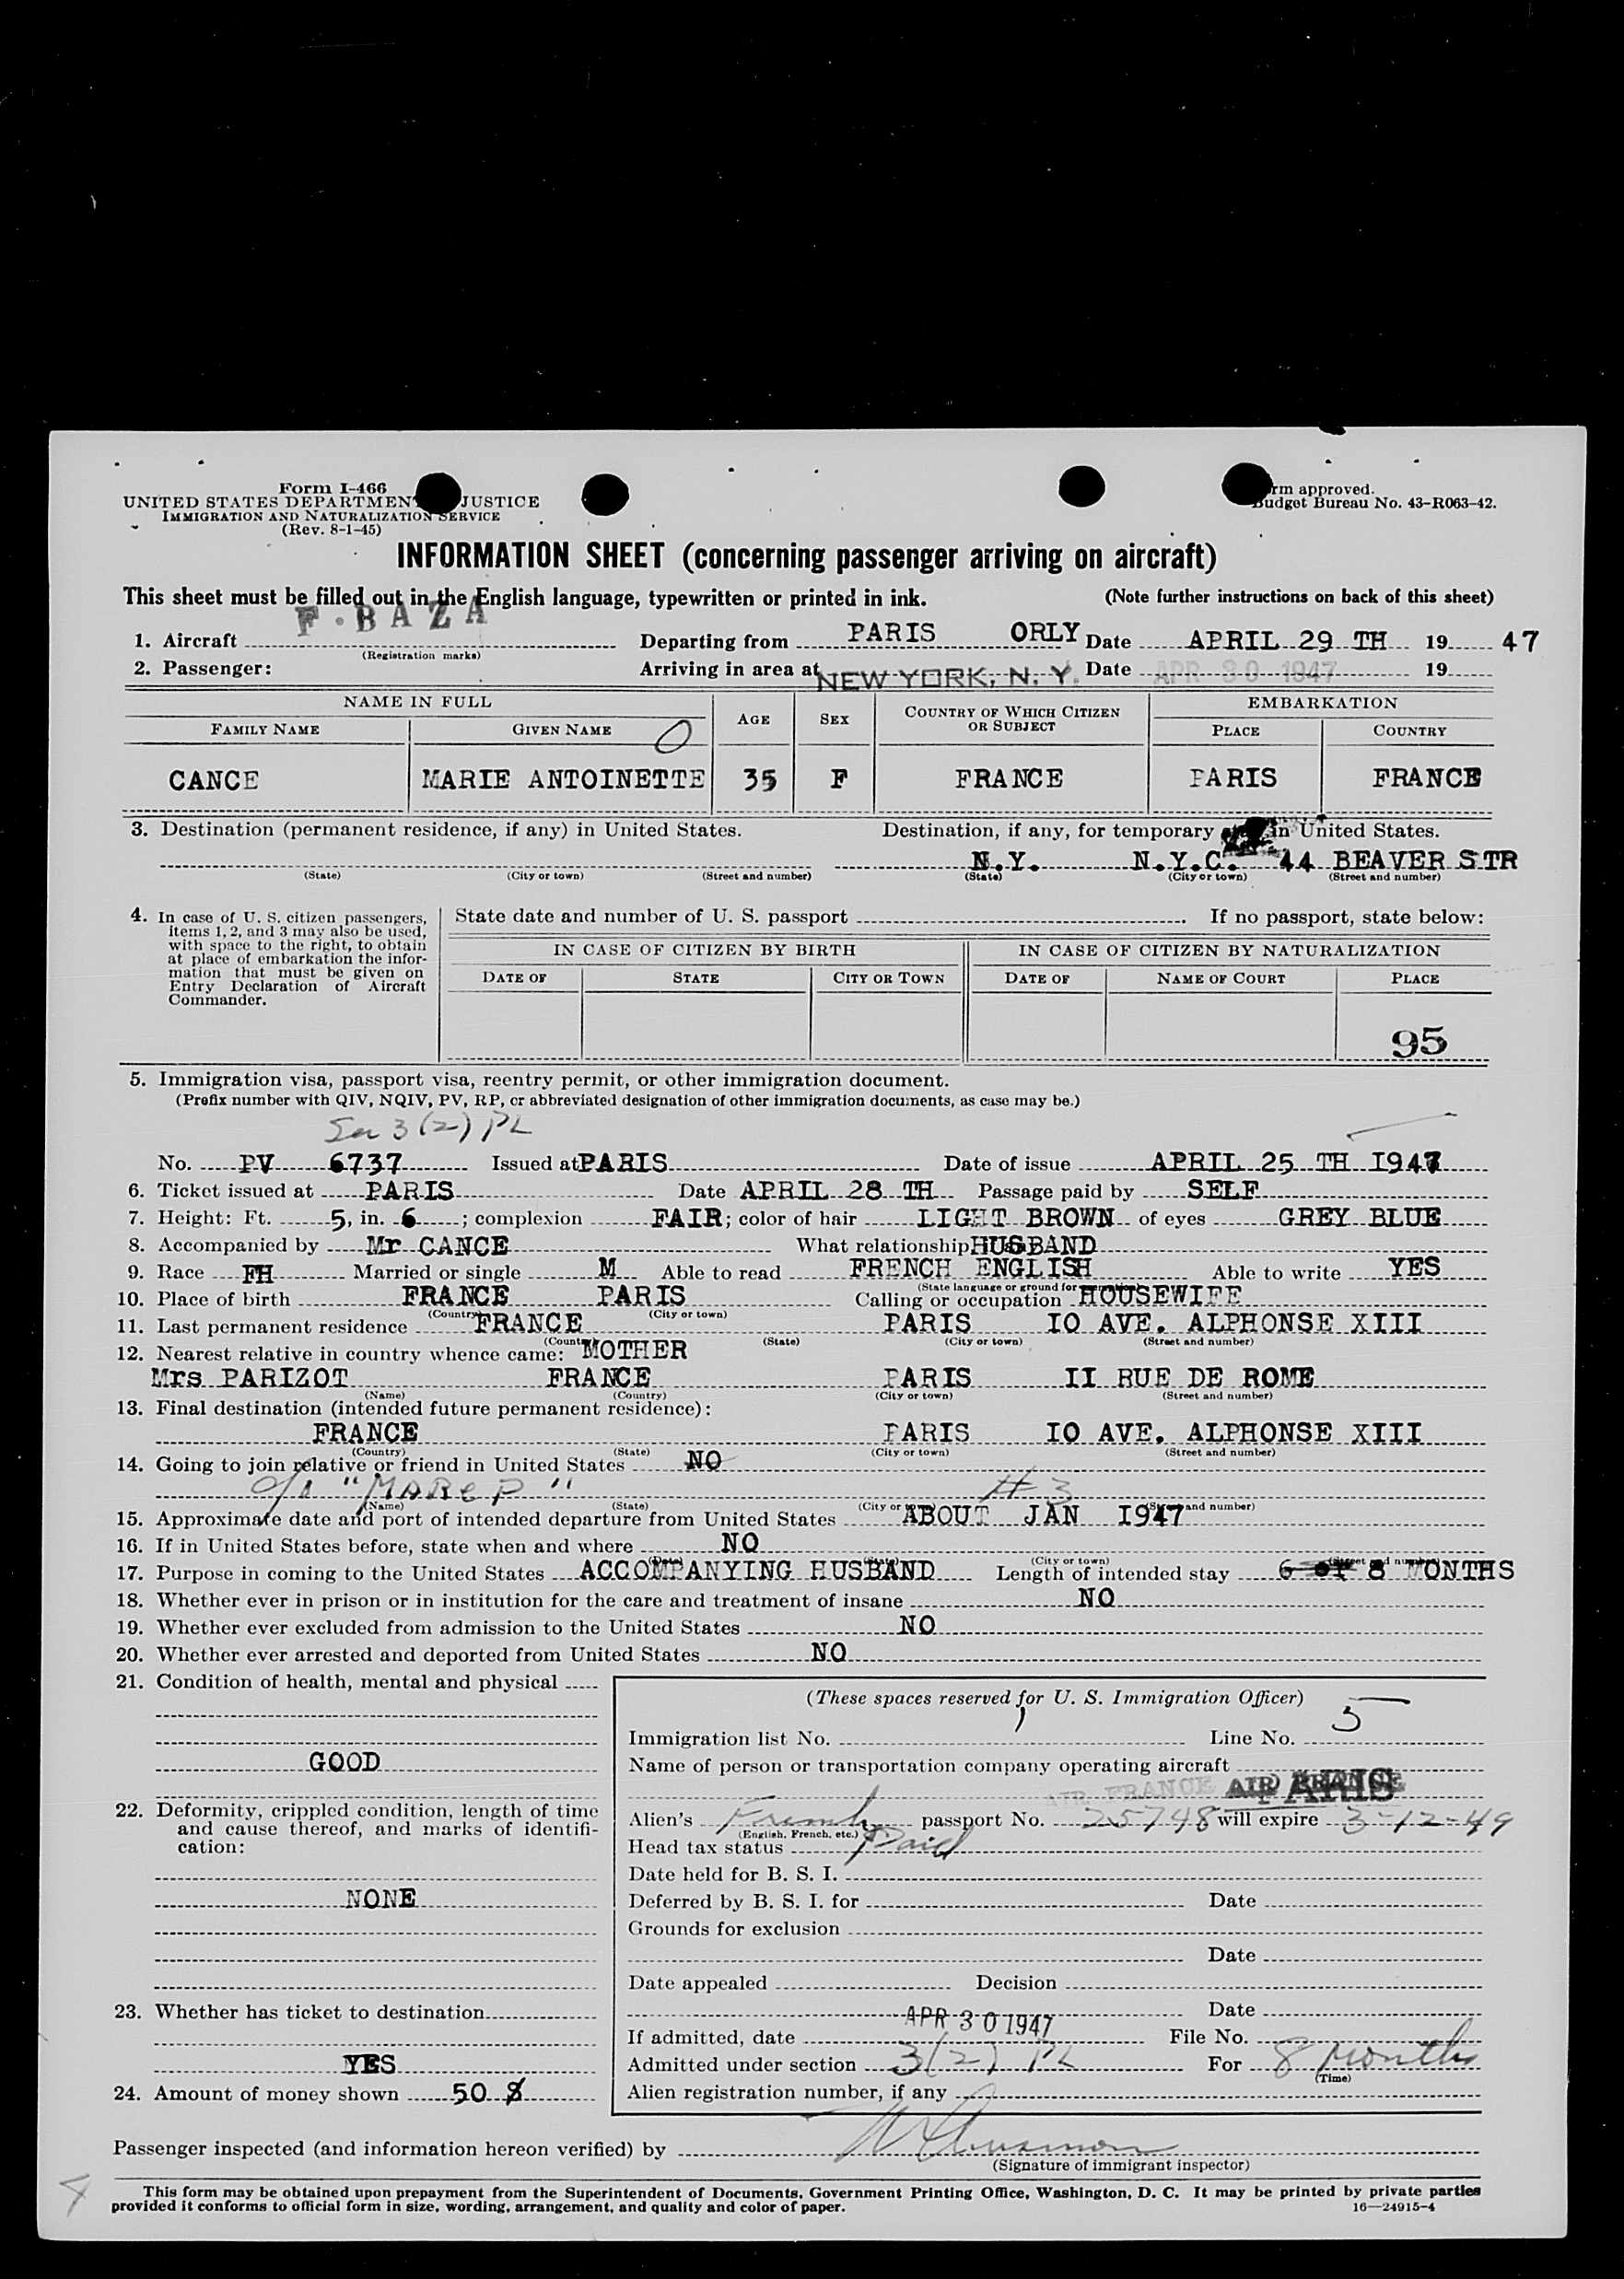 Form I-466
UNITED STATES DEPARTMENT JUSTICE
IMMIGRATION AND NATURALIZATION SERVICE
(Rev. 8-1-45)
rm approved.
Budget Bureau No. 43-R063-42.
INFORMATION SHEET (concerning passenger arriving on aircraft)
This sheet must be filled out in the English language, typewritten or printed in ink. (Note further instructions on back of this sheet)
F·BAZA
1. Aircraft Departing from PARIS ORLY Date APRIL 29 TH 19 47
(Registration marks)
2. Passenger: Arriving in area at NEW YORK, N. Y. Date APR 30 1947 19
NAME IN FULL AGE SEX COUNTRY OF WHICH CITIZEN OR SUBJECT EMBARKATION
FAMILY NAME GIVEN NAME PLACE COUNTRY
CANCE MARIE ANTOINETTE 35 F FRANCE PARIS FRANCE
3. Destination (permanent residence, if any) in United States. Destination, if any, for temporary in United States.
N.Y. N.Y.C. 44 BEAVER STR
(State) (City or town) (Street and number) (State) (City or town) (Street and number)
4. In case of U. S. citizen passengers, items 1, 2, and 3 may also be used, with space to the right, to obtain at place of embarkation the information that must be given on Entry Declaration of Aircraft Commander.
State date and number of U. S. passport If no passport, state below:
IN CASE OF CITIZEN BY BIRTH IN CASE OF CITIZEN BY NATURALIZATION
DATE OF STATE CITY OR TOWN DATE OF NAME OF COURT PLACE
95
5. Immigration visa, passport visa, reentry permit, or other immigration document.
(Prefix number with QIV, NQIV, PV, RP, or abbreviated designation of other immigration documents, as case may be.)
3(2) PL
No. PV 6737 Issued at PARIS Date of issue APRIL 25 TH 1947
6. Ticket issued at PARIS Date APRIL 28 TH Passage paid by SELF
7. Height: Ft. 5, in. 6; complexion FAIR; color of hair LIGHT BROWN of eyes GREY BLUE
8. Accompanied by Mr CANCE What relationship HUSBAND
9. Race FH Married or single M Able to read FRENCH ENGLISH Able to write YES
10. Place of birth FRANCE PARIS Calling or occupation HOUSEWIFE
(Country) (City or town)
11. Last permanent residence FRANCE PARIS IO AVE. ALPHONSE XIII
(Country) (State) (City or town) (Street and number)
12. Nearest relative in country whence came: MOTHER
Mrs PARIZOT FRANCE PARIS II RUE DE ROME
(Name) (Country) (City or town) (Street and number)
13. Final destination (intended future permanent residence):
FRANCE PARIS IO AVE. ALPHONSE XIII
(Country) (State) (City or town) (Street and number)
14. Going to join relative or friend in United States NO
#3
(Name) (State) (City or town) (Street and number)
15. Approximate date and port of intended departure from United States ABOUT JAN I947
16. If in United States before, state when and where NO
17. Purpose in coming to the United States ACCOMPANYING HUSBAND Length of intended stay 6 or 8 MONTHS
18. Whether ever in prison or in institution for the care and treatment of insane NO
19. Whether ever excluded from admission to the United States NO
20. Whether ever arrested and deported from United States NO
21. Condition of health, mental and physical
GOOD
22. Deformity, crippled condition, length of time and cause thereof, and marks of identification:
NONE
23. Whether has ticket to destination
YES
24. Amount of money shown 50 $
(These spaces reserved for U. S. Immigration Officer)
Immigration list No. 1 Line No. 5
Name of person or transportation company operating aircraft
AIR FRANCE
Alien's French passport No. 25748 will expire 3-12-49
(English, French, etc.)
Head tax status Paid
Date held for B. S. I.
Deferred by B. S. I. for Date
Grounds for exclusion
Date
Date appealed Decision
Date
If admitted, date APR 30 1947 File No.
Admitted under section 3(2) PL For 8 months
(Time)
Alien registration number, if any
Passenger inspected (and information hereon verified) by
(Signature of immigrant inspector)
This form may be obtained upon prepayment from the Superintendent of Documents, Government Printing Office, Washington, D. C. It may be printed by private parties
provided it conforms to official form in size, wording, arrangement, and quality and color of paper. 16—24915-4